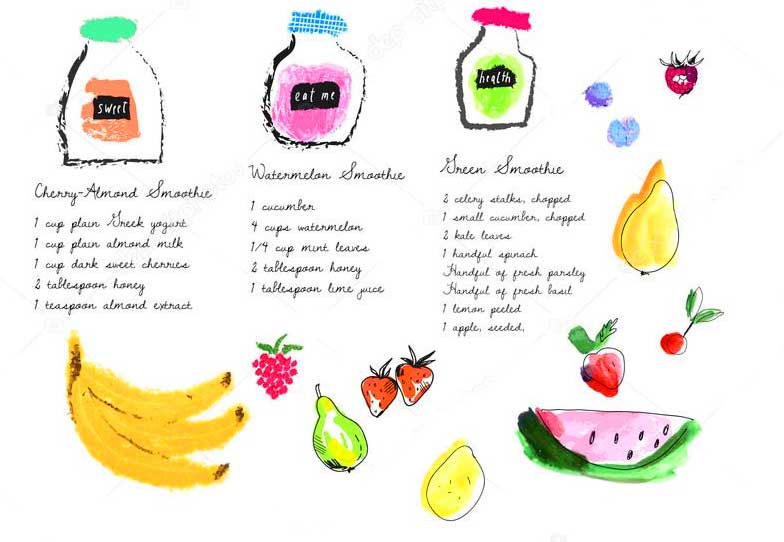 sweet
Cherry-Almond Smoothie
1 cup plain Greek yogurt
1 cup plain almond milk
1 cup dark sweet cherries
2 tablespoon honey
1 teaspoon almond extract
eat me
Watermelon Smoothie
1 cucumber
4 cups watermelon
1/4 cup mint leaves
2 tablespoon honey
1 tablespoon lime juice
health
Green Smoothie
2 celery stalks, chopped
1 small cucumber, chopped
2 kale leaves
1 handful spinach
Handful of fresh parsley
Handful of fresh basil
1 lemon peeled
1 apple, seeded,